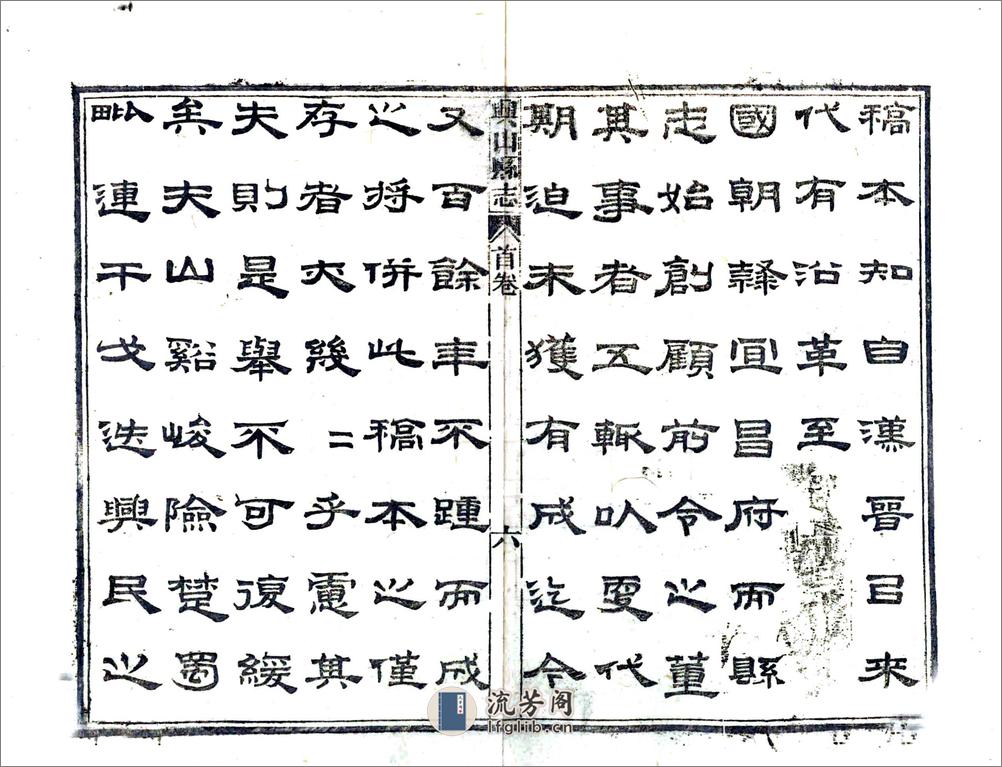 稿本知自漢晉㠯來
代有沿革至
國朝隸宜昌府而縣
志始創顧前令之董
其事者五輒以更代
期迫未獲有成迄今
興山縣志 首卷 六
又百餘年不踵而成
之將併此稿本之僅
存者亦幾二乎慮其
失則是舉不可復緩
矣夫山谿峻險楚蜀
毗連干戈迭興民之
流芳阁
lfglib.cn